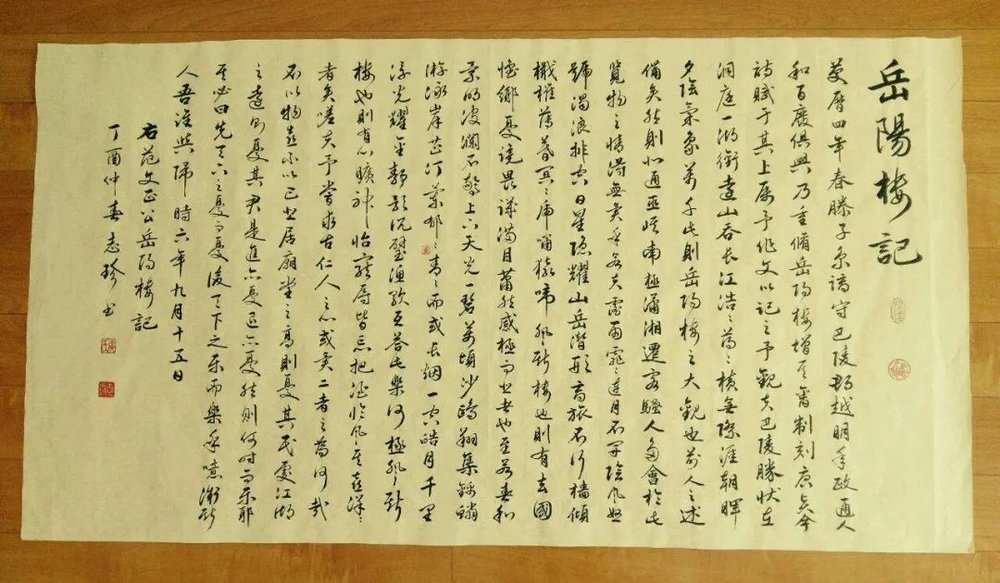 岳陽樓記
慶曆四年春滕子京謫守巴陵郡越明年政通人
和百廢俱興乃重脩岳陽樓增其舊制刻唐賢今人
詩賦于其上屬予作文以記之予觀夫巴陵勝狀在
洞庭一湖銜遠山吞長江浩〻蕩〻橫無際涯朝暉
夕陰氣象萬千此則岳陽樓之大觀也前人之述
備矣然則北通巫峽南極瀟湘遷客騷人多會於此
覽物之情得無異乎若夫霪雨霏〻連月不開陰風怒
號濁浪排空日星隱耀山岳潛形商旅不行檣傾
檝摧薄暮冥〻虎嘯猿啼登斯樓也則有去國
懷鄉憂讒畏譏滿目蕭然感極而悲者也至若春和
景明波瀾不驚上下天光一碧萬頃沙鷗翔集錦鱗
游泳岸芷汀蘭郁〻青〻而或長烟一空皓月千里
浮光耀金靜影沉璧漁歌互答此樂何極登斯
樓也則有心曠神怡寵辱皆忘把酒臨風其喜洋〻
者矣嗟夫予嘗求古仁人之心或異二者之為何哉
不以物喜不以己悲居廟堂之高則憂其民處江湖
之遠則憂其君是進亦憂退亦憂然則何時而樂耶
其必曰先天下之憂而憂後天下之樂而樂乎噫微斯
人吾誰與歸 時六年九月十五日
右范文正公岳陽樓記
丁酉仲春志珍書